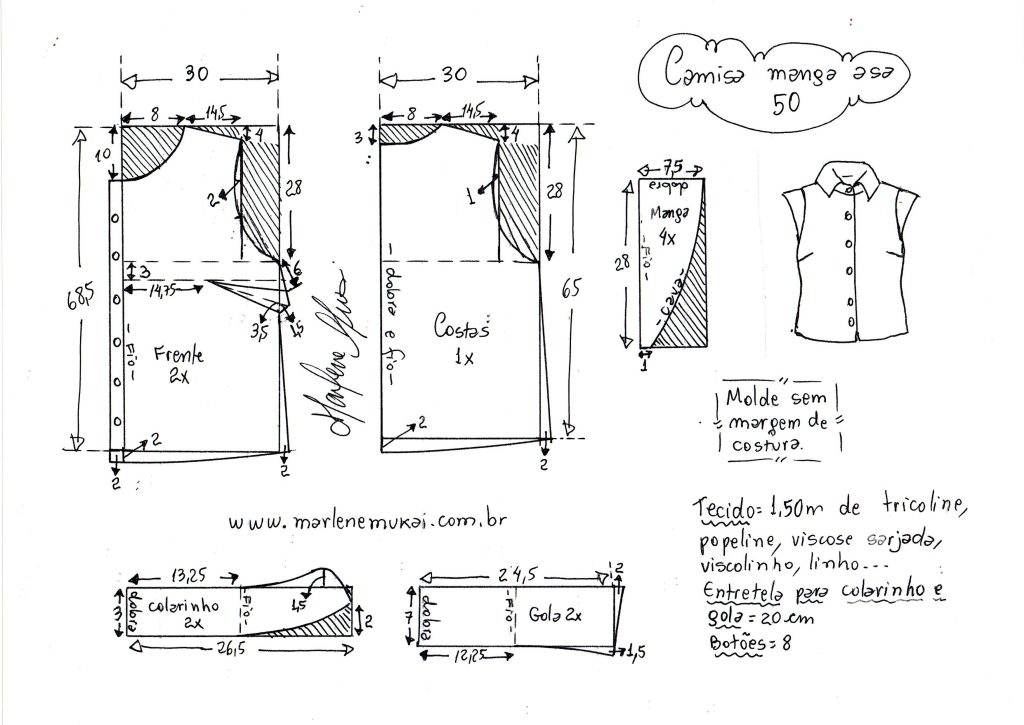 Camisa manga asa
50
30
8
14,5
4
10
28
2
3
14,75
6
3,5
1,5
68,5
Fio
Frente
2x
2
2
2
30
3
4
1
28
dobra e fio
Costas
1x
65
2
7,5
dobra
Manga
4x
Fio
cava
28
1
Molde sem
margem de
costura.
www.marlenemukai.com.br
Tecido= 1,50m de tricoline,
popeline, viscose sarjada,
viscolinho, linho...
Entretela para colarinho e
gola = 20 cm
Botões= 8
13,25
3
dobra
colarinho
2x
Fio
1,5
2
26,5
24,5
2
7
dobra
Fio
Gola 2x
12,25
1,5